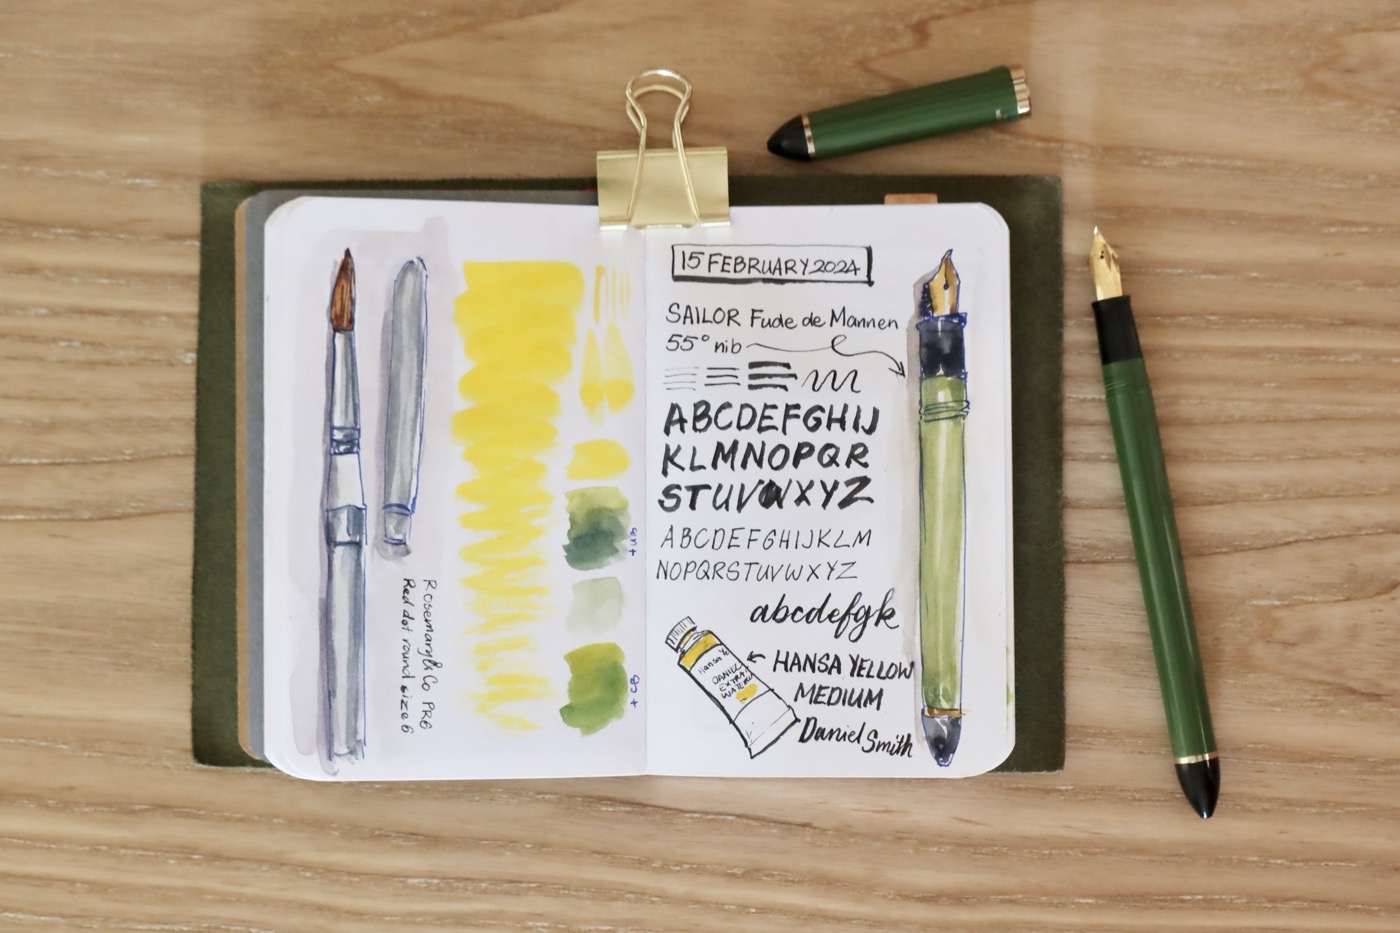 Rosemary&Co PR6
Red dot round size 6
+ CB
15 FEBRUARY 2024
SAILOR Fude de Mannen
55° nib
ABCDEFGHIJ
KLMNOPQR
STUVWXYZ
ABCDEFGHIJKLM
NOPQRSTUVWXYZ
abcdefgk
Hansa Ye
DANIEL
EXTRA
WATER
HANSA YELLOW
MEDIUM
Daniel Smith